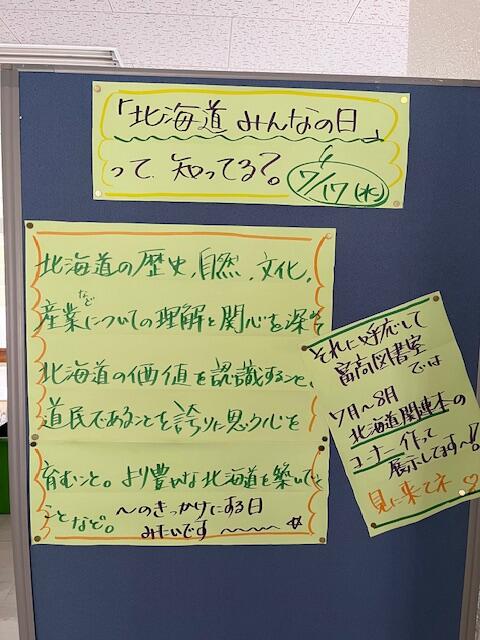 「北海道みんなの日」
って知ってる?。
7/17(水)
北海道の歴史、自然、文化、
産業などについての理解と関心を深めて
北海道の価値を認識すること、
道民であることを誇りに思う心を
育むこと。より豊かな北海道を築いていく
ことなど。
〜のきっかけにする日
みたいです〜〜〜☆
それに呼応して
富高図書室
では
7月〜8月
北海道関連本の
コーナー作って
展示してます〜!
見に来てネ♡